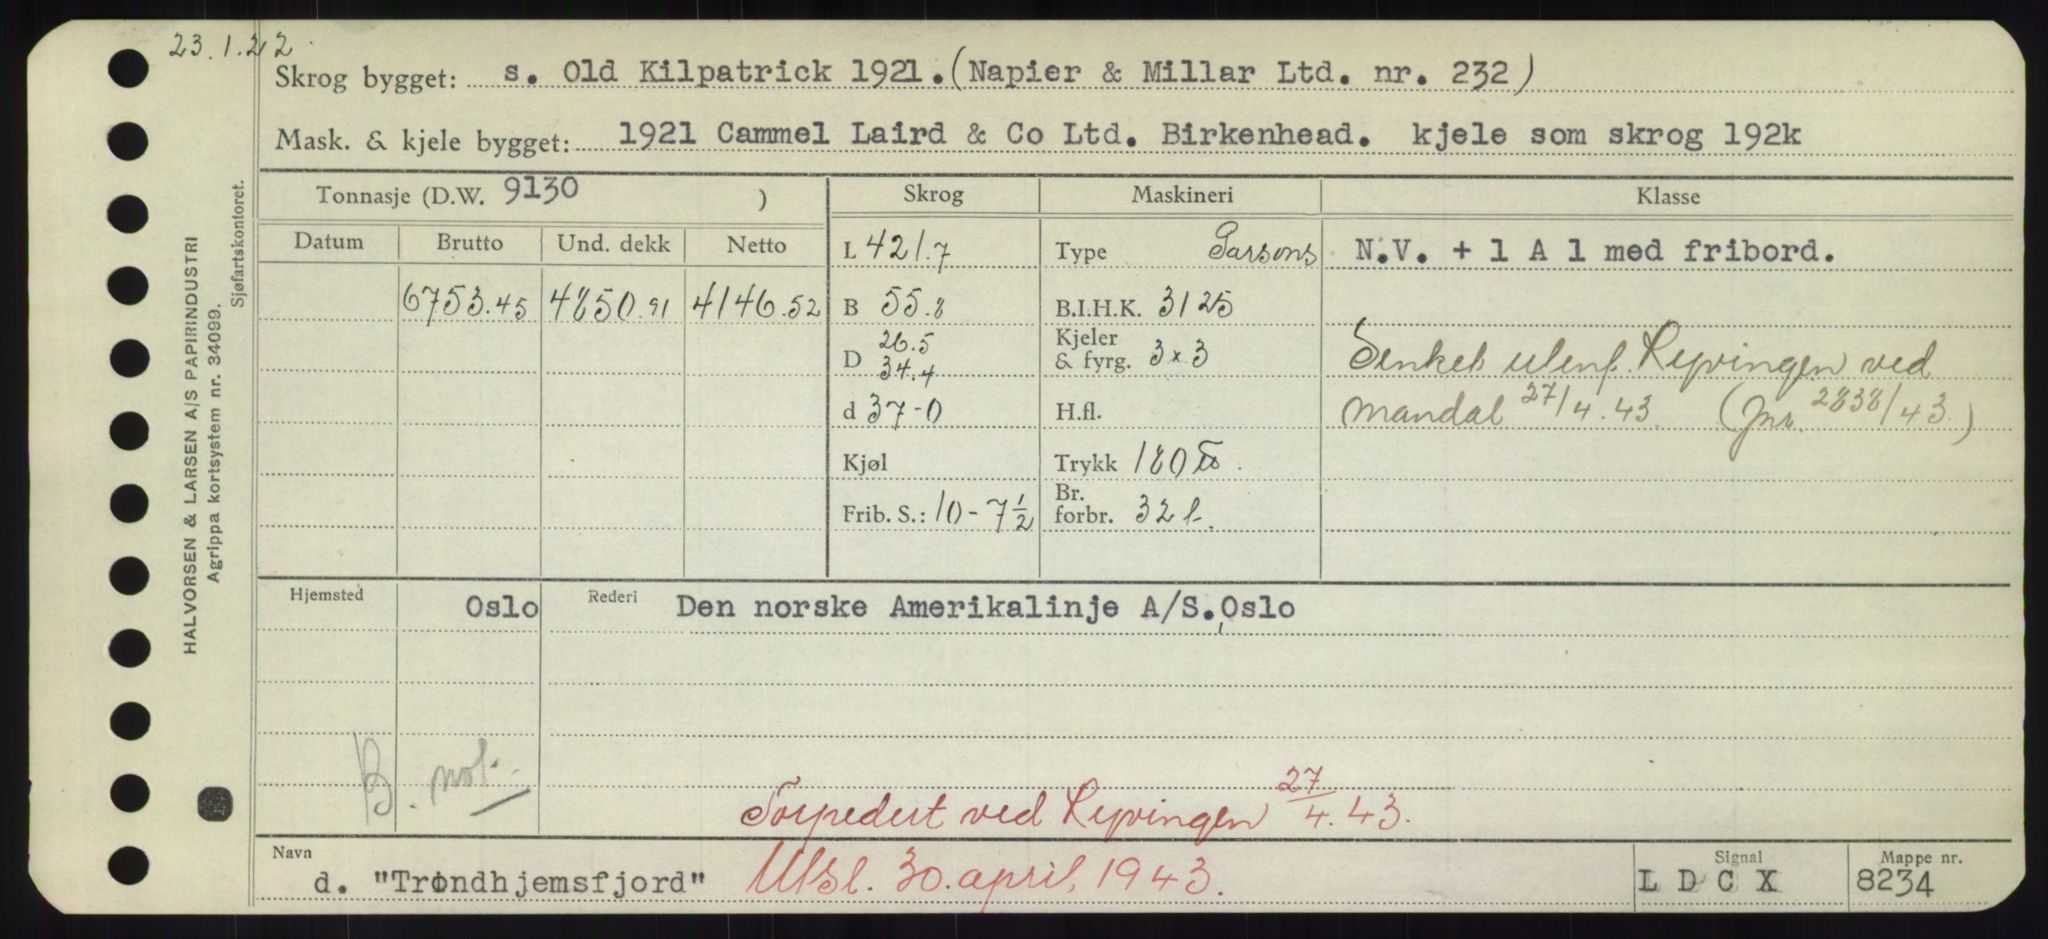 23.1.22.
Skrog bygget: s. Old Kilpatrick 1921. (Napier & Millar Ltd. nr. 232)
Mask. & kjele bygget: 1921 Cammel Laird & Co Ltd. Birkenhead. kjele som skrog 192k
Tonnasje (D.W. 9130 )
Datum Brutto Und. dekk Netto
6753.45 4850.91 4146.52
Skrog
L 421.7
B 55.8
D 26.5
34.4
d 37-0
Kjøl
Frib. S.: 10-7½
Maskineri
Type Parsons
B.I.H.K. 3125
Kjeler
& fyrg. 3x3
H.fl.
Trykk 180 ℔.
Br.
forbr. 32 t.
Klasse
N.V. + 1 A 1 med fribord.
Senket utenf. Ryvingen ved
Mandal 27/4.43. (Jnr. 2838/43.)
Hjemsted Oslo Rederi Den norske Amerikalinje A/S., Oslo
B. not.
Torpedert ved Ryvingen 27/4.43.
Navn
d. "Trondhjemsfjord" Utsl. 30. april, 1943.
Signal
L D C X
Mappe nr.
8234
HALVORSEN & LARSEN A/S PAPIRINDUSTRI
Agrippa kortsystem nr. 34099.
Sjøfartskontoret.